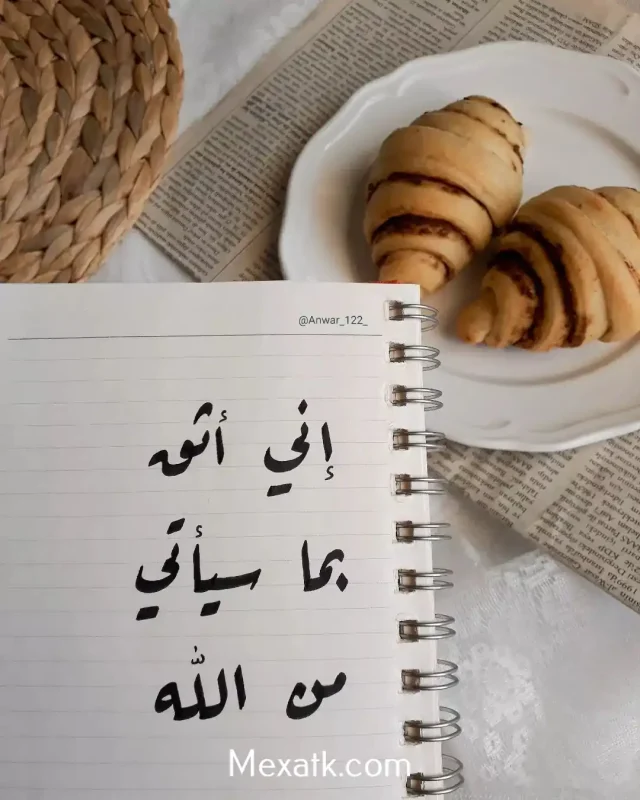 @Anwar_122_
إني أثق
بما سيأتي
من الله
Mexatk.com